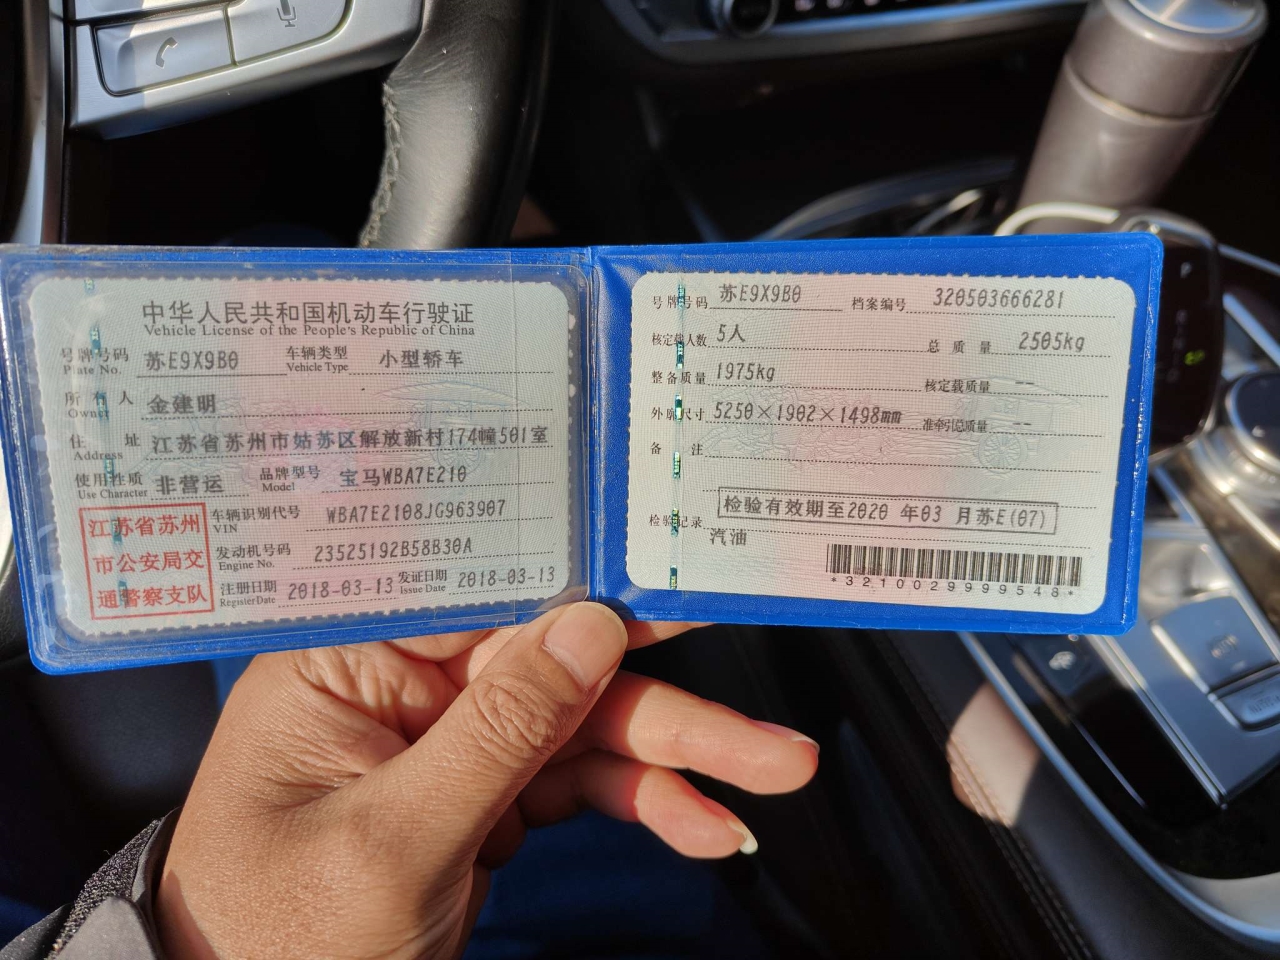 中华人民共和国机动车行驶证
Vehicle License of the People's Republic of China
号牌号码 苏E9X9B0 车辆类型 小型轿车
Plate No. Vehicle Type
所有人 金建明
Owner
住址 江苏省苏州市姑苏区解放新村174幢501室
Address
使用性质 非营运 品牌型号 宝马WBA7E210
Use Character Model
江苏省苏州
市公安局交
通警察支队
车辆识别代号 WBA7E2108JG963907
VIN
发动机号码 23525192B58B30A
Engine No.
注册日期 2018-03-13 发证日期 2018-03-13
Register Date Issue Date
号牌号码 苏E9X9B0 档案编号 320503666281
核定载人数 5人 总质量 2505kg
整备质量 1975kg 核定载质量 --
外廓尺寸 5250×1902×1498mm 准牵引总质量 --
备注
检验记录 检验有效期至2020 年03 月苏E(07)
汽油
*3210029999548*
P